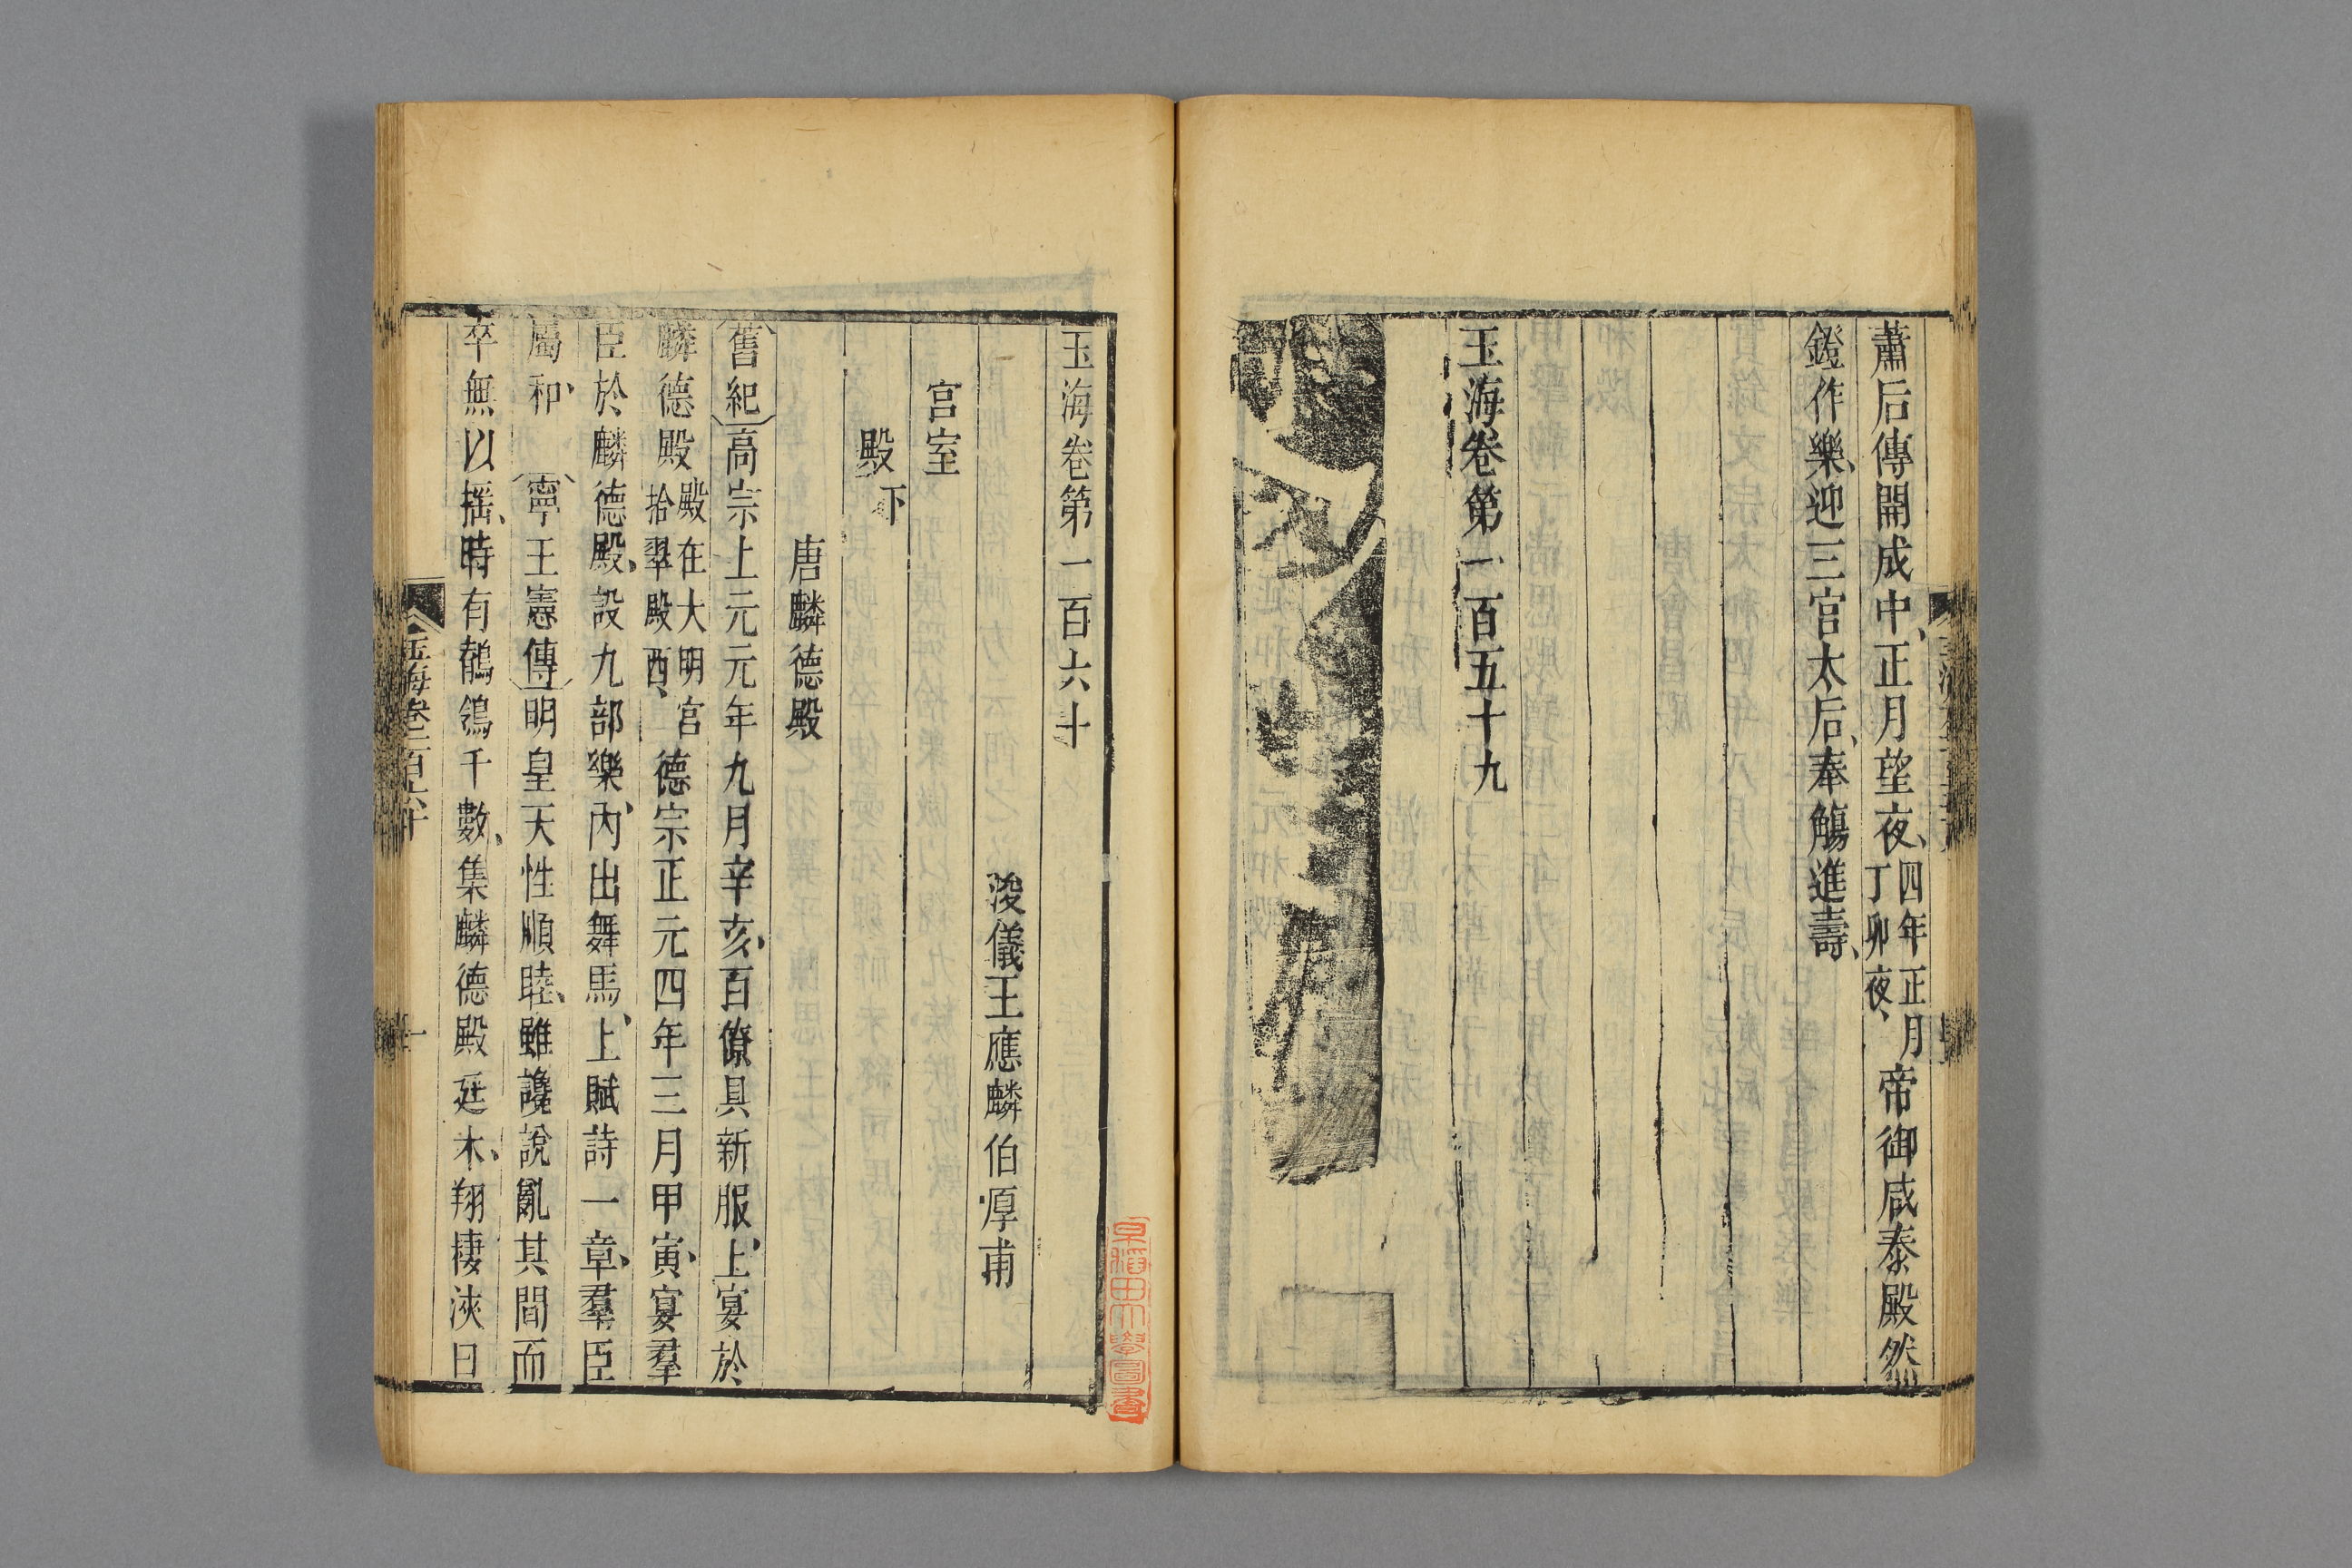 蕭后傳開成中正月望夜四年正月丁卯夜帝御咸泰殿然
鐙作樂迎三宫太后奉觴進壽
玉海卷第一百五十九
玉海卷第一百六十
浚儀王應麟伯厚甫
宫室
殿下
唐麟德殿
舊紀高宗上元元年九月辛亥百僚具新服上宴於
麟德殿殿在大明宫拾翠殿西德宗正元四年三月甲寅宴羣
臣於麟德殿設九部樂內出舞馬上賦詩一章羣臣
屬和寧王憲傳明皇天性順睦雖讒說亂其間而
卒無以摇時有鶺鴒千數集麟德殿廷木翔棲浹日
玉海卷一百六十
一
早稻田大學圖書